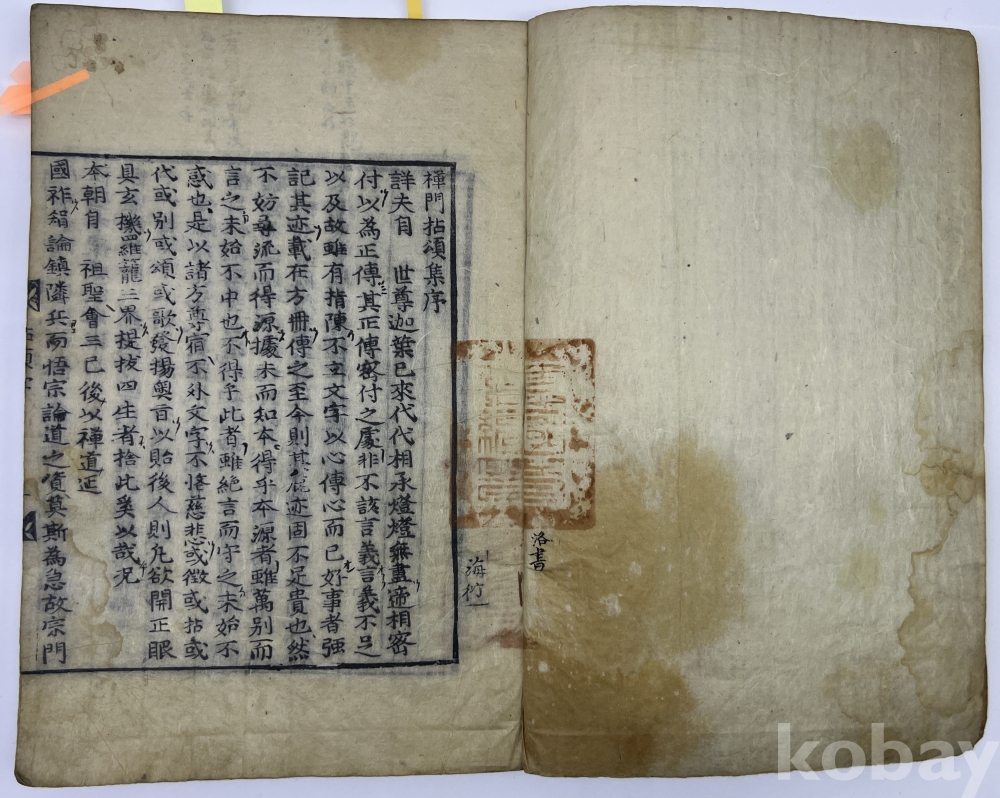 禪門拈頌集序
詳夫自 世尊迦葉已來代代相承燈燈無盡遞相密
付以為正傳其正傳密付之處非不該言義言義不足
以及故雖有指陳不立文字以心傳心而已好事者强
記其迹載在方冊傳之至今則其麁迹固不足貴也然
不妨尋流而得源據末而知本得乎本源者雖萬別而
言之未始不中也不得乎此者雖絶言而守之未始不
惑也是以諸方尊宿不外文字不悋慈悲或徵或拈或
代或別或頌或歌發揚奧旨以貽後人則凡欲開正眼
具玄機羅籠三界提拔四生者捨此奚以哉况
本朝自 祖聖會三已後以禪道延
國祚智論鎭隣兵而悟宗論道之資莫斯為急故宗門
海衍
洛書
kobay